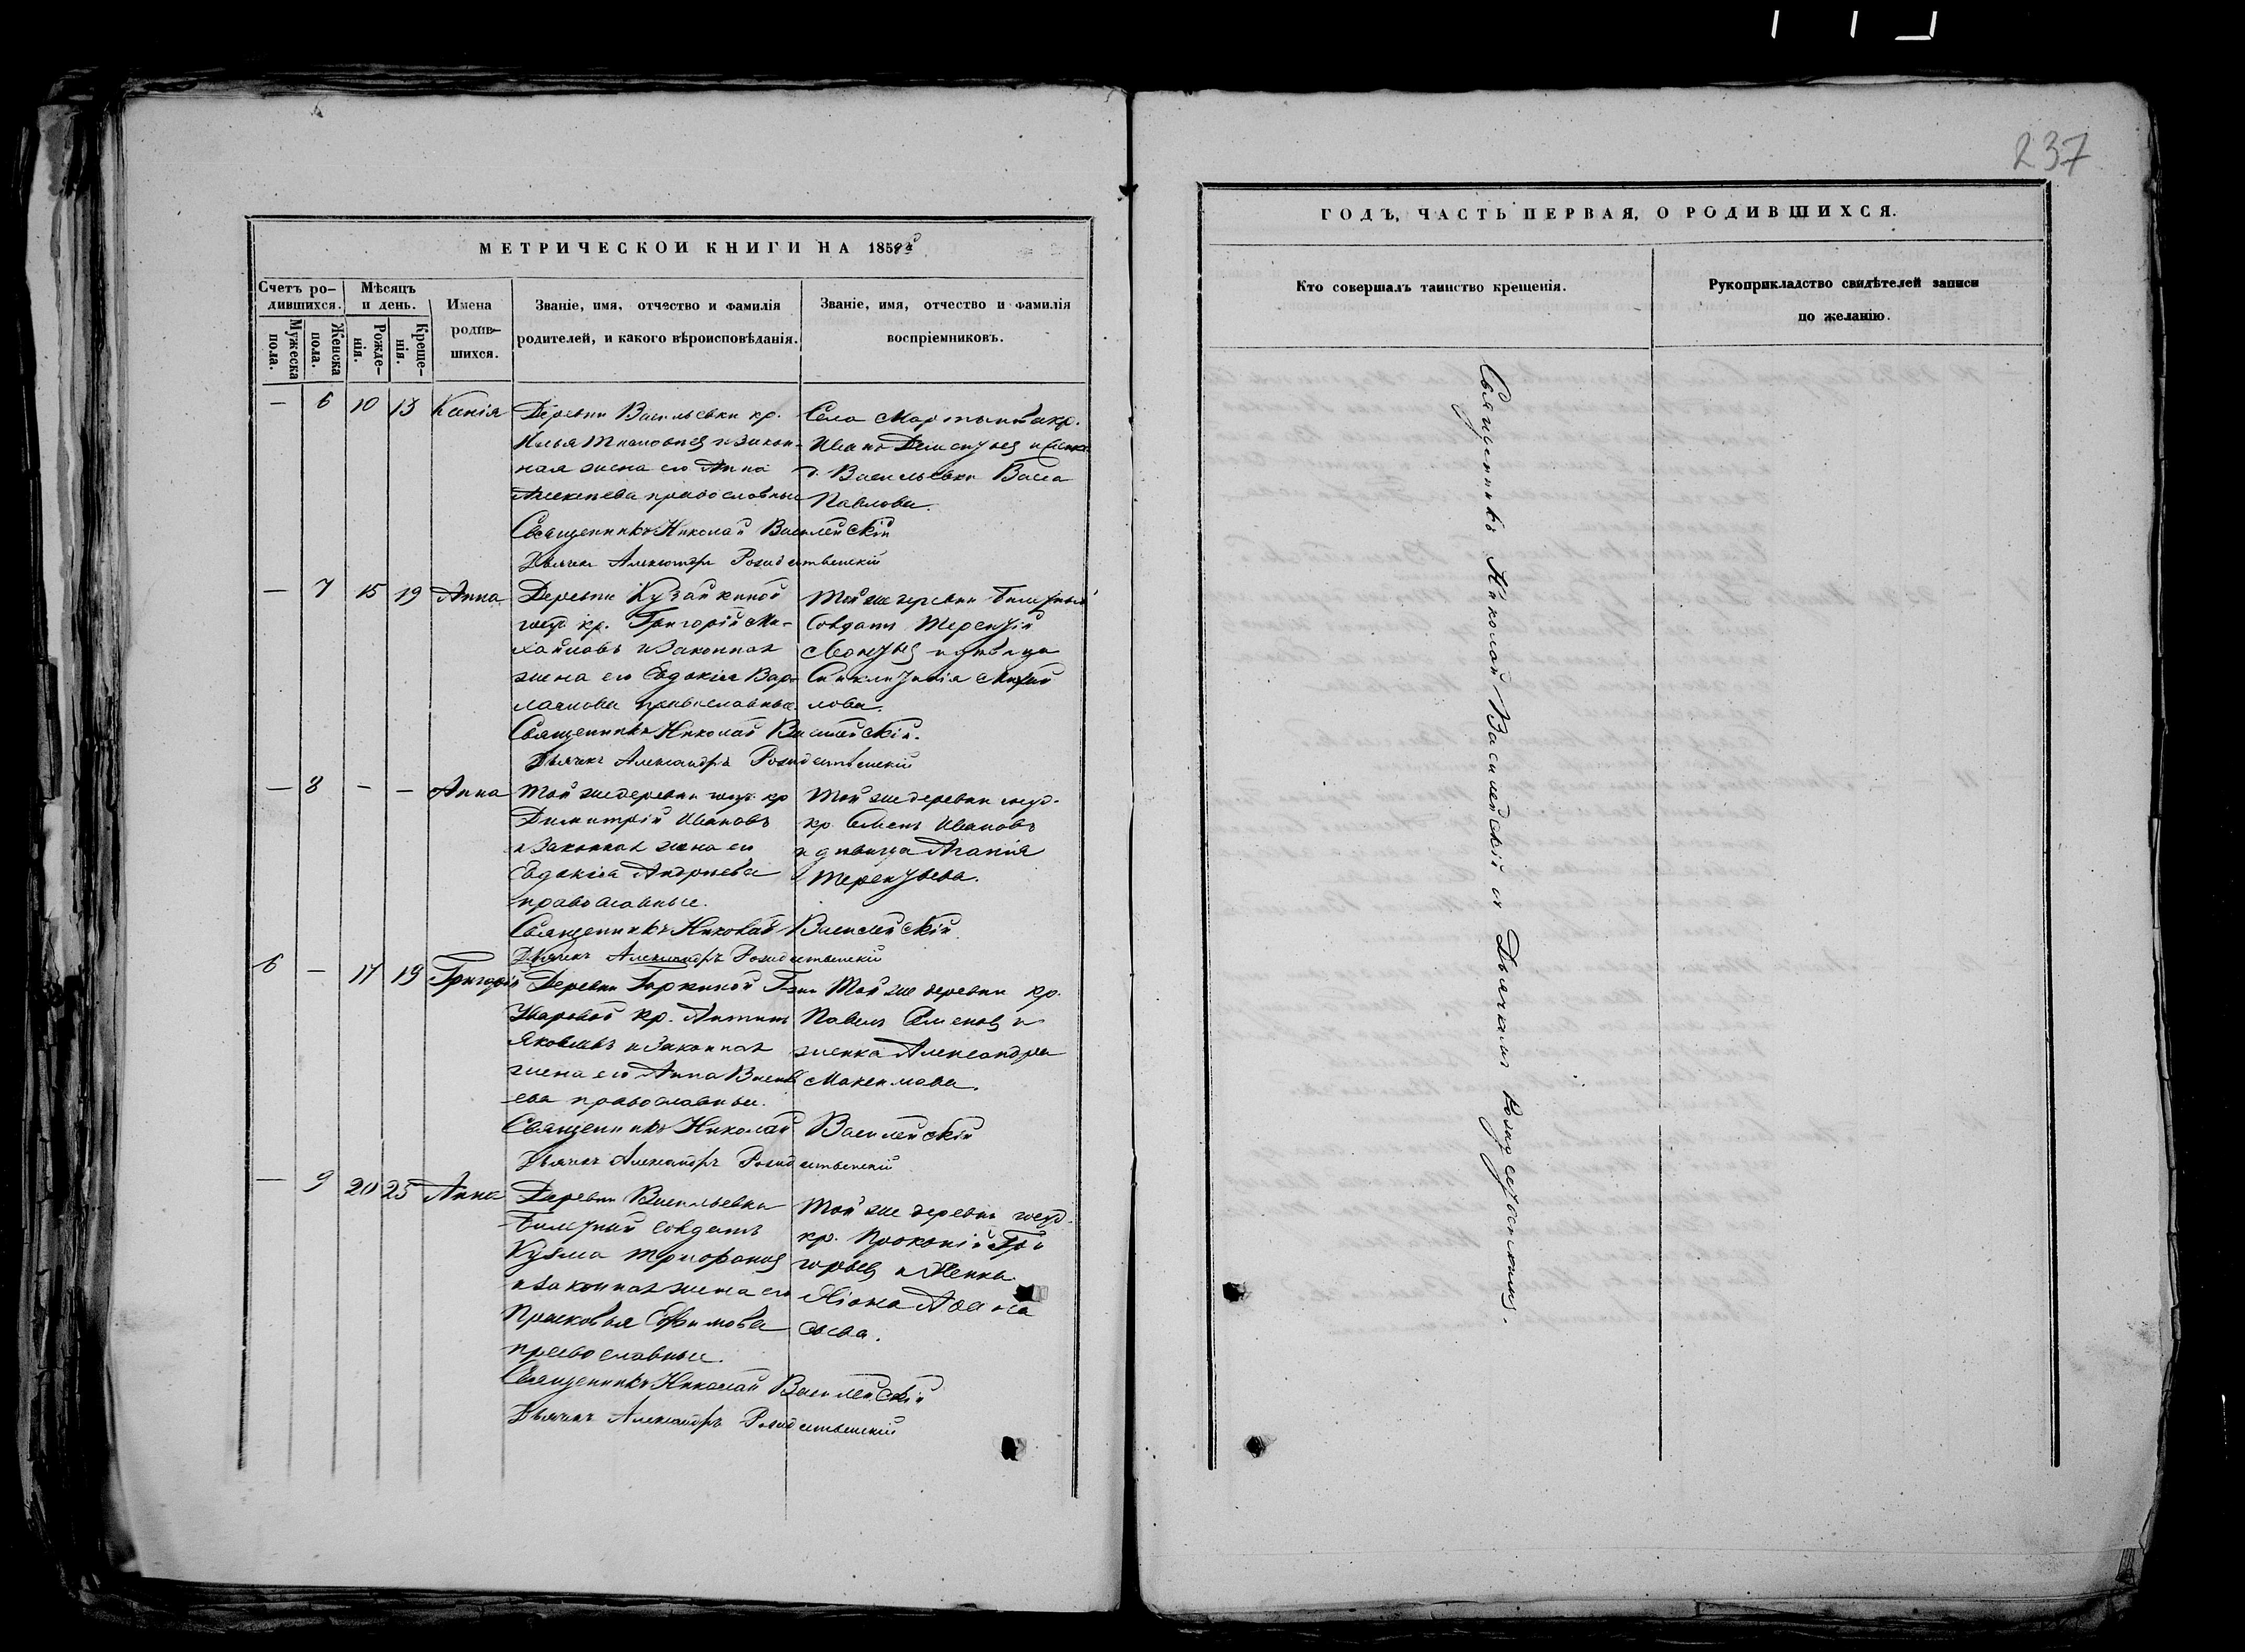 237
МЕТРИЧЕСКОЙ КНИГИ НА 185
Счетъ ро-
дившихся.
Мужеска пола.
Женска пола.
Мѣсяцъ
и день.
Рожде-
нія.
Креще-
нія.
Имена
родив-
шихся.
Званіе, имя, отчество и фамилія
родителей, и какого вѣроисповѣданія.
Званіе, имя, отчество и фамилія
воспріемниковъ.
— 6 10 13
Деревни Васильевки кр.
Илья и закон-
ная жена его Анна
Алексѣева православные
Села кр.
Иванъ Дементьев и
д. Васильевки Васса
Павлова.
Священникъ Николай Василейскій
Дьячекъ Александръ Рождественскій
— 7 15 19 Анна
Деревни Кузайкиной
госуд. кр. Григорій Ми-
хайловъ и законная
жена его Евдокія Вар-
лаамова православные.
Той же деревни билетный
солдатъ Терентій
Леонтьев и дѣвица
Синклитикія Михай
лова.
Священникъ Николай Василейскій.
Дьячекъ Александръ Рождественскій
— 8 - - Анна
Той же деревни госуд. кр
Димитрій Ивановъ
и законная жена его
Евдокія Андреева
православные.
Той же деревни госуд.
кр. Семенъ Ивановъ
и дѣвица Агапія
Терентьева.
Священникъ Николай Василейскій
Дьячекъ Александръ Рождественскій
6 — 17 19 Григорій
Деревни Горкиной
кр. Антипъ
Яковлевъ и законная
жена его Анна Василь
ева православные.
Той же деревни кр.
Павелъ Семенов и
женка Александра
Максимова.
Священникъ Николай Василейскій
Дьячекъ Александръ Рождественскій
— 9 20 25 Анна
Деревни Васильевки
билетный солдатъ
Кузма Трифонов
и законная жена его
Прасковья Ефимова
православные.
Той же деревни госуд.
кр. Прокопій Гри
горьев и женка
Афана
сьева.
Священникъ Николай Василейскій
Дьячекъ Александръ Рождественскій
ГОДЪ, ЧАСТЬ ПЕРВАЯ, О РОДИВШИХСЯ.
Кто совершалъ таинство крещенія.
Рукоприкладство свидѣтелей записи
по желанію.
Священникъ Николай Василейскій съ Дьячкомъ Рождественскимъ.